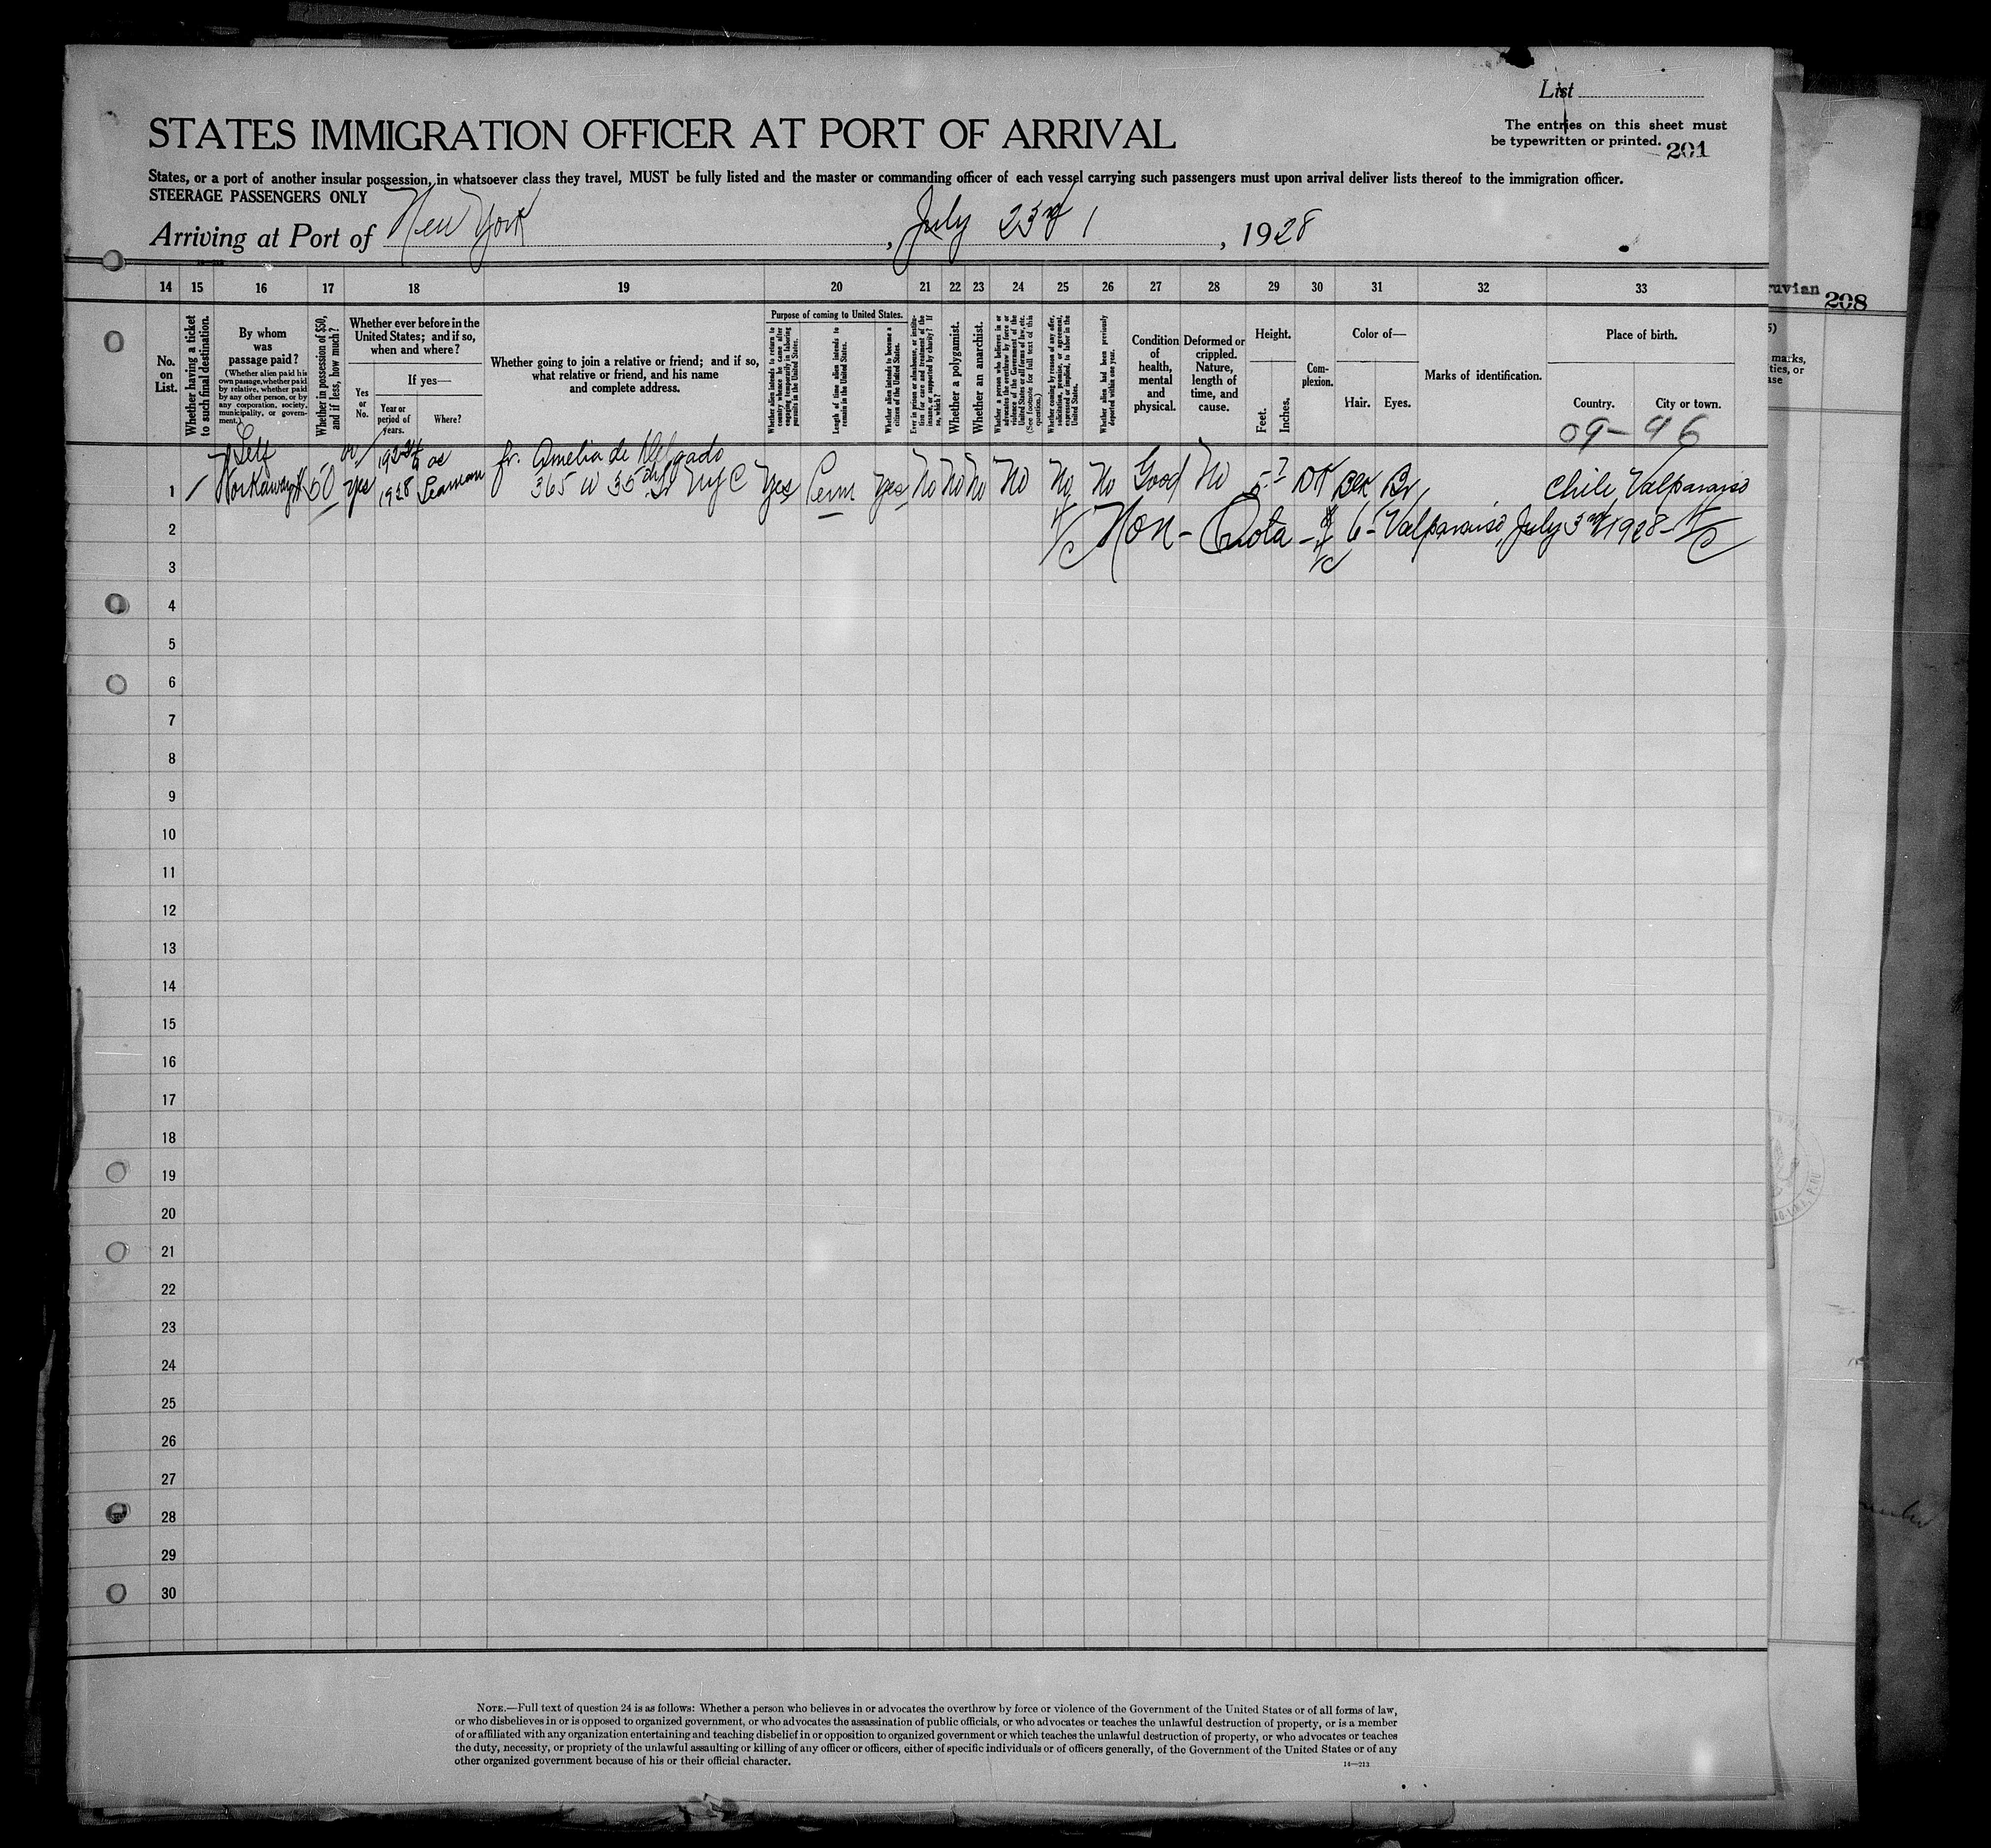 List
STATES IMMIGRATION OFFICER AT PORT OF ARRIVAL
The entries on this sheet must
be typewritten or printed. 201
States, or a port of another insular possession, in whatsoever class they travel, MUST be fully listed and the master or commanding officer of each vessel carrying such passengers must upon arrival deliver lists thereof to the immigration officer.
STEERAGE PASSENGERS ONLY
Arriving at Port of New York, July 23rd, 1928
14 15 16 17 18 19 20 21 22 23 24 25 26 27 28 29 30 31 32 33
No. on List.
Whether having a ticket to such final destination.
By whom was passage paid?
(Whether alien paid his own passage, whether paid by relative, whether paid by any other person, or by any corporation, society, municipality, or government.)
Whether in possession of $50, and if less, how much?
Whether ever before in the United States; and if so, when and where?
Yes or No.
If yes—
Year or period of years.
Where?
Whether going to join a relative or friend; and if so, what relative or friend, and his name and complete address.
Purpose of coming to United States.
Whether alien intends to return to country whence he came after engaging temporarily in laboring pursuits in the United States.
Length of time alien intends to remain in the United States.
Whether alien intends to become a citizen of the United States.
Ever in prison or almshouse, or institution for care and treatment of the insane, or supported by charity? If so, which?
Whether a polygamist.
Whether an anarchist.
Whether a person who believes in or advocates the overthrow by force or violence of the Government of the United States or all forms of law, etc. (See footnote for full text of this question.)
Whether coming by reason of any offer, solicitation, promise, or agreement, expressed or implied, to labor in the United States.
Whether alien had been previously deported within one year.
Condition of health, mental and physical.
Deformed or crippled. Nature, length of time, and cause.
Height.
Feet.
Inches.
Complexion.
Color of—
Hair.
Eyes.
Marks of identification.
Place of birth.
Country.
City or town.
09-96
Self 1924 as fr. Amelia de Delgado
1 / Workaway 50 yes 1928 Seaman 365 W 35th St NYC Yes Perm yes No No No No No No Good No 5 7 DK Blk Br Chile Valparaiso
2 Non-Quota - 6- Valparaiso, July 3rd 1928-
3
4
5
6
7
8
9
10
11
12
13
14
15
16
17
18
19
20
21
22
23
24
25
26
27
28
29
30
NOTE.—Full text of question 24 is as follows: Whether a person who believes in or advocates the overthrow by force or violence of the Government of the United States or of all forms of law,
or who disbelieves in or is opposed to organized government, or who advocates the assassination of public officials, or who advocates or teaches the unlawful destruction of property, or is a member
of or affiliated with any organization entertaining and teaching disbelief in or opposition to organized government or which teaches the unlawful destruction of property, or who advocates or teaches
the duty, necessity, or propriety of the unlawful assaulting or killing of any officer or officers, either of specific individuals or of officers generally, of the Government of the United States or of any
other organized government because of his or their official character.
14—213
208